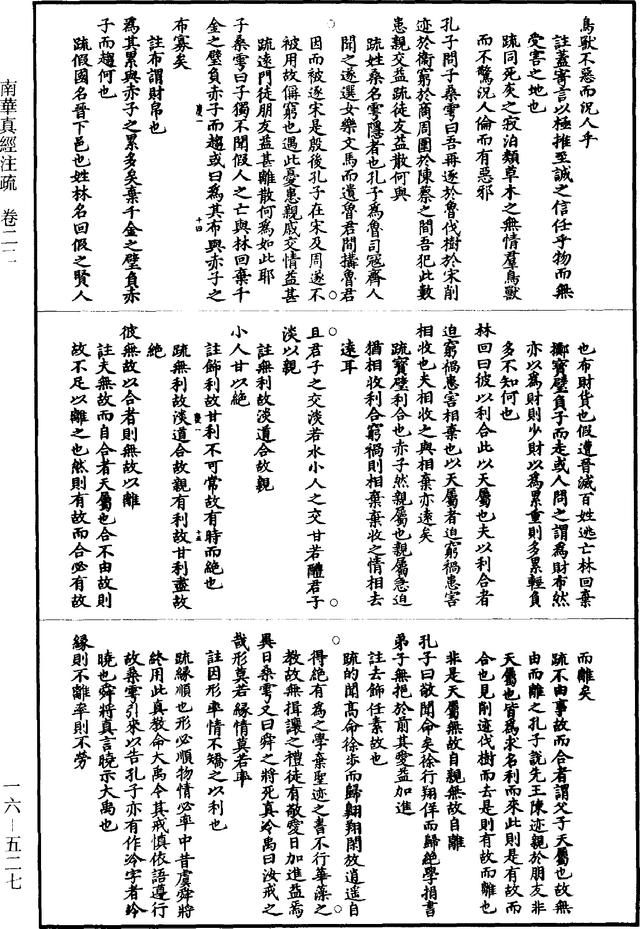 鳥獸不惡而況人乎
註蓋寄言以極推至誠之信任乎物而無
受害之地也
疏同死灰之寂泊類草木之無情羣鳥獸
而不驚況人倫而有惡邪
孔子問子桑雽曰吾再逐於魯伐樹於宋削
迹於衛窮於商周圍於陳蔡之間吾犯此數
患親交益疏徒友益散何與
疏姓桑名雽隱者也孔子為魯司寇齊人
聞之遂選女樂文馬而遺魯君間搆魯君
因而被逐宋是殷後孔子在宋及周遂不
被用故偁窮也遇此憂患親戚交情益甚
疏遠門徒朋友益甚離散何為如此耶
子桑雽曰子獨不聞假人之亡與林回棄千
金之璧負赤子而趨或曰為其布與赤子之
布寡矣
註布謂財帛也
為其累與赤子之累多矣棄千金之璧負赤
子而趨何也
疏假國名晉下邑也姓林名回假之賢人
也布財貨也假遭晉滅百姓逃亡林回棄
擲寶璧負子而走或人問之謂為財布然
亦以為財則少財以為累重則多累輕負
多不知何也
林回曰彼以利合此以天屬也夫以利合者
迫窮禍患害相棄也以天屬者迫窮禍患害
相收也夫相收之與相棄亦遠矣
疏寶璧利合也赤子然親屬也親屬急迫
猶相收利合窮禍則相棄棄收之情相去
遠耳
且君子之交淡若水小人之交甘若醴君子
淡以親
註無利故淡道合故親
小人甘以絕
註飾利故甘利不可常故有時而絕也
疏無利故淡道合故親有利故甘利盡故
絕
彼無故以合者則無故以離
註夫無故而自合者天屬也合不由故則
故不足以離之也然則有故而合必有故
而離矣
疏不由事故而合者謂父子天屬也故無
由而離之孔子說先王陳迹親於朋友非
天屬也皆為求名利而來此則是有故而
合也見削迹伐樹而去是則有故而離也
非是天屬無故自親無故自離
孔子曰敬聞命矣徐行翔佯而歸絕學捐書
弟子無挹於前其愛益加進
註去飾任素故也
疏的聞高命徐步而歸翱翔閑放逍遥自
得絕有為之學棄聖迹之書不行華藻之
教故無揖讓之禮徒有敬愛日加進益焉
異日桑雽又曰舜之將死真泠禹曰汝戒之
哉形莫若緣情莫若率
註因形率情不矯之以利也
疏緣順也形必順物情必率中昔虞舜將
終用此真教命大禹令其戒慎依語遵行
故桑雽引來以告孔子亦有作泠字者泠
曉也舜將真言曉示大禹也
緣則不離率則不勞
南華真經注疏　卷二二
一六－五二七